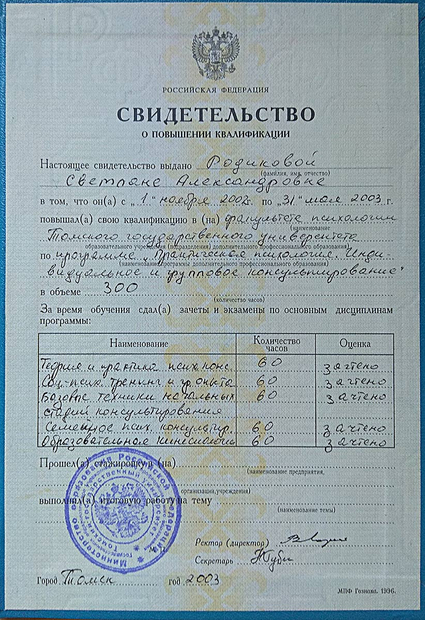 РОССИЙСКАЯ ФЕДЕРАЦИЯ
СВИДЕТЕЛЬСТВО
О ПОВЫШЕНИИ КВАЛИФИКАЦИИ
Настоящее свидетельство выдано Родиковой
(фамилия, имя, отчество)
Светлане Александровне
в том, что он(а) с "1" ноября 2002 г. по "31" мая 2003 г.
повышал(а) свою квалификацию в (на) факультете психологии
(наименование
Томского государственного университета
образовательного учреждения (подразделения) дополнительного профессионального образования)
по программе "Практическая психология. Инди-
(наименование программы дополнительного профессионального образования)
видуальное и групповое консультирование"
в объеме 300
(количество часов)
За время обучения сдал(а) зачеты и экзамены по основным дисциплинам
программы:
Наименование Количество часов Оценка
Теория и практика псих. конс. 60 зачтено
Соц-психол. тренинг и гр. опыта 60 зачтено
Базовые техники начальных 60 зачтено
стадий консультирования
Семейное псих. консультир. 60 зачтено
Образовательная кинесиология 60 зачтено
Прошел(а) стажировку в (на)
(наименование предприятия,
организации, учреждения)
выполнил(а) итоговую работу на тему
(наименование темы)
Ректор (директор)
Секретарь
Город Томск год 2003
МПФ Гознака. 1996.